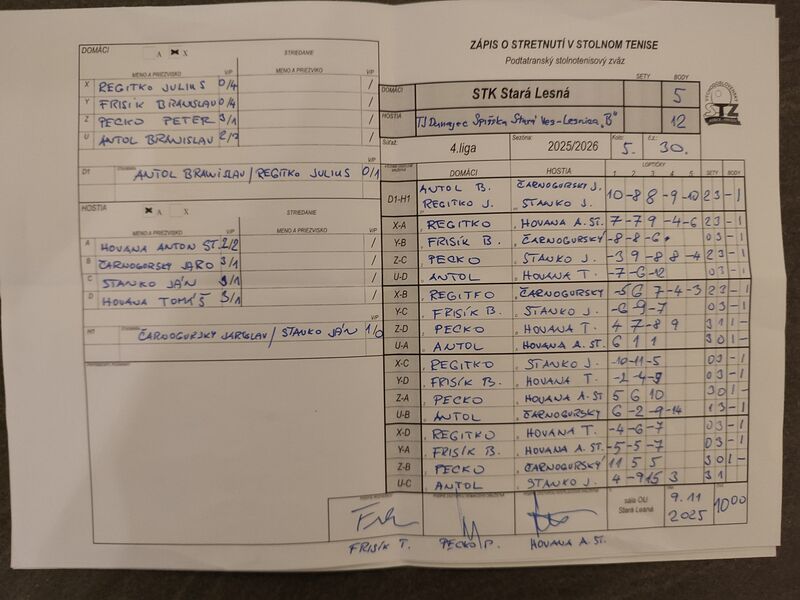 DOMÁCI A X STRIEDANIE
MENO A PRIEZVISKO V/P MENO A PRIEZVISKO V/P
X REGITKO JULIUS 0/4 /
Y FRISÍK BRANISLAV 0/4 /
Z PECKO PETER 3/1 /
U ANTOL BRANISLAV 2/2 /
V/P
D1 ANTOL BRANISLAV/REGITKO JULIUS 0/1
HOSTIA A X STRIEDANIE
MENO A PRIEZVISKO V/P MENO A PRIEZVISKO V/P
A HOVANA ANTON ST. 2/2 /
B ČARNOGURSKÝ JARO 3/1 /
C STANKO JÁN 3/1 /
D HOVANA TOMÁŠ 3/1 /
V/P
H1 ČARNOGURSKÝ JAROSLAV/STANKO JÁN 1/0
ZÁPIS O STRETNUTÍ V STOLNOM TENISE
Podtatranský stolnotenisový zväz
SETY BODY
DOMÁCI STK Stará Lesná 5
HOSTIA TJ Dunajec Spišská Stará Ves-Lesnica "B" 12
Súťaž: 4.liga Sezóna: 2025/2026 Kolo: 5. č.z.: 30.
LOPTIČKY
DOMÁCI HOSTIA 1 2 3 4 5 SETY BODY
D1-H1 ANTOL B. ČARNOGURSKÝ J. 10 -8 8 -9 -10 2 3 - 1
REGITKO J. STANKO J.
X-A REGITKO HOVANA A. ST. 7 -7 9 -4 -6 2 3 - 1
Y-B FRISÍK B. ČARNOGURSKÝ -8 -8 -6 0 3 - 1
Z-C PECKO STANKO J. -3 9 -8 8 -4 2 3 - 1
U-D ANTOL HOVANA T. -7 -6 -12 0 3 - 1
X-B REGITKO ČARNOGURSKÝ -5 6 7 -4 -3 2 3 - 1
Y-C FRISÍK B. STANKO J. -6 -9 -7 0 3 - 1
Z-D PECKO HOVANA T. 4 7 -8 9 3 1 1 -
U-A ANTOL HOVANA A. ST. 6 1 1 3 0 1 -
X-C REGITKO STANKO J. -10 -11 -5 0 3 - 1
Y-D FRISÍK B. HOVANA T. -2 -4 0 3 - 1
Z-A PECKO HOVANA A. ST 5 6 10 3 0 1 -
U-B ANTOL ČARNOGURSKÝ 6 -2 -9 -14 1 3 - 1
X-D REGITKO HOVANA T. -4 -6 -7 0 3 - 1
Y-A FRISÍK B. HOVANA A. ST. -5 -5 -7 0 3 - 1
Z-B PECKO ČARNOGURSKÝ 11 5 5 3 0 1 -
U-C ANTOL STANKO J. 4 -9 15 3 3 1
sála OU
Stará Lesná
9.11
2025
10 00
FRISÍK T. PECKO P. HOVANA A. ST.